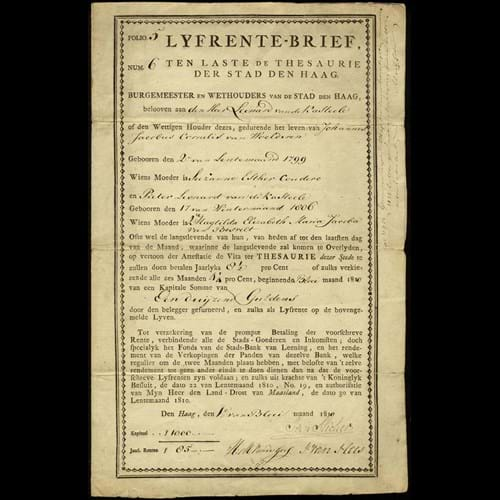 FOLIO. 5 LYFRENTE-BRIEF,
NUM. 6 TEN LASTE DE THESAURIE
DER STAD DEN HAAG.
BURGEMEESTER EN WETHOUDERS VAN DE STAD DEN HAAG,
belooven aan den Heer Leonard van de Kasteele
of den Wettigen Houder dezes, gedurende het leven van Johannes
Jacobus Cornelis van
Gebooren den 2e van Lentemaand 1799
Wiens Moeder is Suzanna Esther
en Pieter Leonard van de Kasteele
Gebooren den 17 van Wintermaand 1806
Wiens Moeder is Elizabeth Maria Jacoba
Ofte wel de langstlevende van hun, van heden af tot den laatsten dag
van de Maand, waarinne de langstlevende zal komen te Overlyden,
op vertoon der Attestatie de Vita ter THESAURIE dezer Stede te
zullen doen betalen Jaarlyks pro Cent of zulks verkie-
zende alle zes Maanden pro Cent, beginnende maand 1810
van een Kapitale Somme van
Een duijzend Guldens
door den belegger gefurneerd, en zulks als Lyfrente op de bovenge-
melde Lyven.
Tot verzekering van de prompte Betaling der voorschreve
Rente, verbindende alle de Stads-Goederen en Inkomsten; doch
specialyk het Fonds van de Stads-Bank van Leening, en het rende-
ment van de Verkopingen der Panden van dezelve Bank, welke
regulier om de twee Maanden plaats hebben, met belofte van 't zelve
rendement te geen ander einde te doen dienen dan na dat de voor-
schreve Lyfrenten zyn voldaan; en zulks uit kracht van 't Koninglyk
Besluit, de dato 22 van Lentemaand 1810, No. 19, en authorisatie
van Myn Heer den Land-Drost van Maasland, de dato 30 van
Lentemaand 1810.
Den Haag, den 1e van Bloei maand 1810
Kapitaal f 1000
Jaarl. Renten f 85